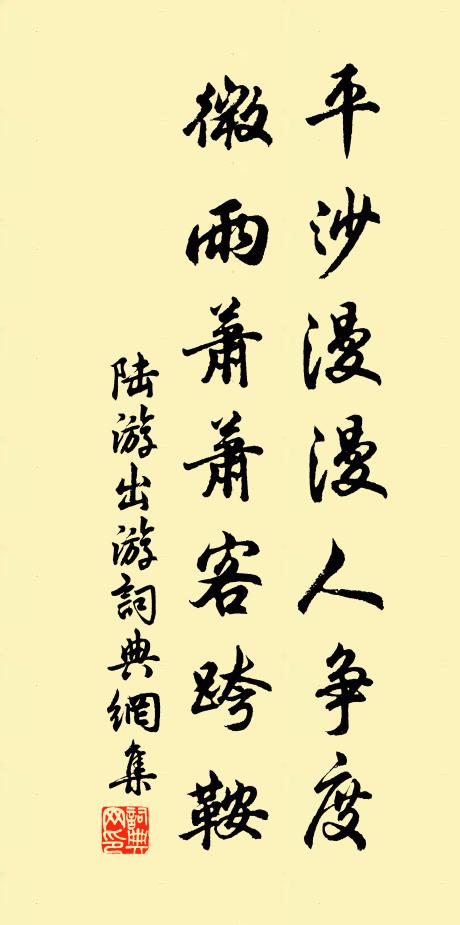 平沙漫漫人争度
微雨萧萧客跨鞍
陆游出游詞典網集
詞典网印